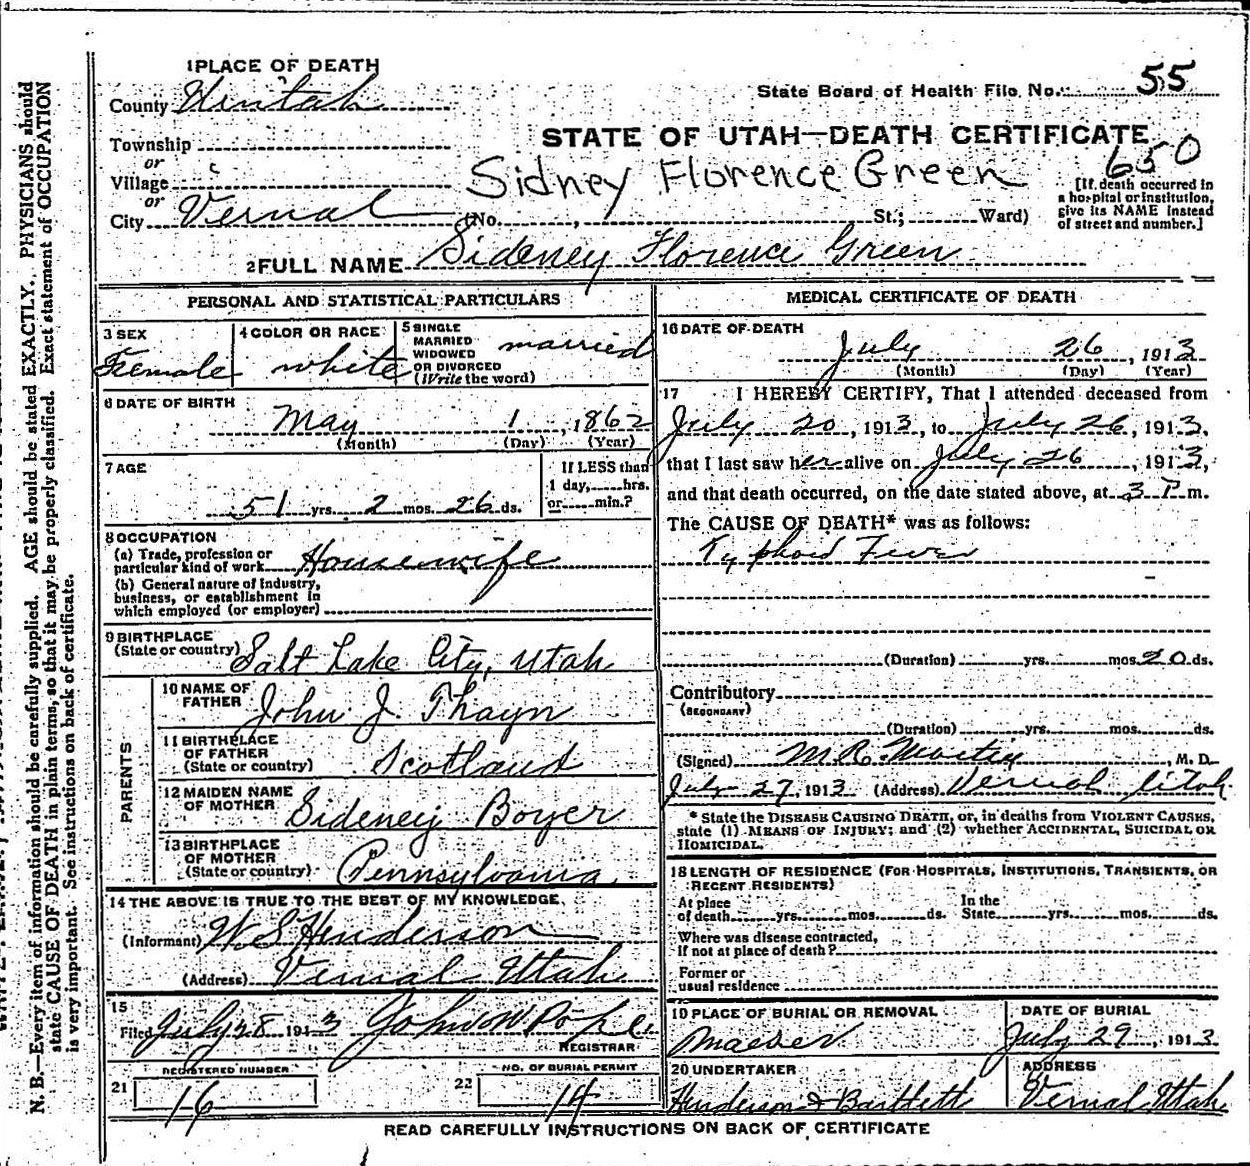 1 PLACE OF DEATH
County Uintah
State Board of Health File No. 55
Township
or
Village
or
City Vernal
STATE OF UTAH—DEATH CERTIFICATE
650
Sidney Florence Green
(No. , St.; Ward)
[If death occurred in
a hospital or institution,
give its NAME instead
of street and number.]
2 FULL NAME Sideney Florence Green
PERSONAL AND STATISTICAL PARTICULARS
3 SEX Female
4 COLOR OR RACE white
5 SINGLE
MARRIED
WIDOWED
OR DIVORCED
(Write the word) married
6 DATE OF BIRTH
May 1, 1862
(Month) (Day) (Year)
7 AGE
51 yrs. 2 mos. 26 ds.
If LESS than
1 day, hrs.
or min.?
8 OCCUPATION
(a) Trade, profession or
particular kind of work Housewife
(b) General nature of Industry,
business, or establishment in
which employed (or employer)
9 BIRTHPLACE
(State or country) Salt Lake City, Utah
PARENTS
10 NAME OF
FATHER John J. Thayn
11 BIRTHPLACE
OF FATHER
(State or country) Scotland
12 MAIDEN NAME
OF MOTHER Sideney Boyer
13 BIRTHPLACE
OF MOTHER
(State or country) Pennsylvania
14 THE ABOVE IS TRUE TO THE BEST OF MY KNOWLEDGE.
(Informant) W. S Henderson
(Address) Vernal Utah
15
Filed July 28 1913 John W Pope
REGISTRAR
21 REGISTERED NUMBER
16
22 NO. OF BURIAL PERMIT
14
MEDICAL CERTIFICATE OF DEATH
16 DATE OF DEATH
July 26, 1913
(Month) (Day) (Year)
17 I HEREBY CERTIFY, That I attended deceased from
July 20, 1913, to July 26, 1913,
that I last saw her alive on July 26, 1913,
and that death occurred, on the date stated above, at 3 P m.
The CAUSE OF DEATH* was as follows:
Typhoid Fever
(Duration) yrs. mos. 20 ds.
Contributory
(SECONDARY)
(Duration) yrs. mos. ds.
(Signed) M.R. , M. D.
July 27, 1913 (Address) Vernal Utah
* State the DISEASE CAUSING DEATH, or, in deaths from VIOLENT CAUSES,
state (1) MEANS OF INJURY; and (2) whether ACCIDENTAL, SUICIDAL OR
HOMICIDAL.
18 LENGTH OF RESIDENCE (FOR HOSPITALS, INSTITUTIONS, TRANSIENTS, OR
RECENT RESIDENTS)
At place
of death yrs. mos. ds.
In the
State yrs. mos. ds.
Where was disease contracted,
if not at place of death?
Former or
usual residence
19 PLACE OF BURIAL OR REMOVAL
Maeser
DATE OF BURIAL
July 29, 1913
20 UNDERTAKER
Henderson & Bartlett
ADDRESS
Vernal Utah
READ CAREFULLY INSTRUCTIONS ON BACK OF CERTIFICATE
N. B.—Every item of information should be carefully supplied. AGE should be stated EXACTLY. PHYSICIANS should
state CAUSE OF DEATH in plain terms, so that it may be properly classified. Exact statement of OCCUPATION
is very important. See instructions on back of certificate.